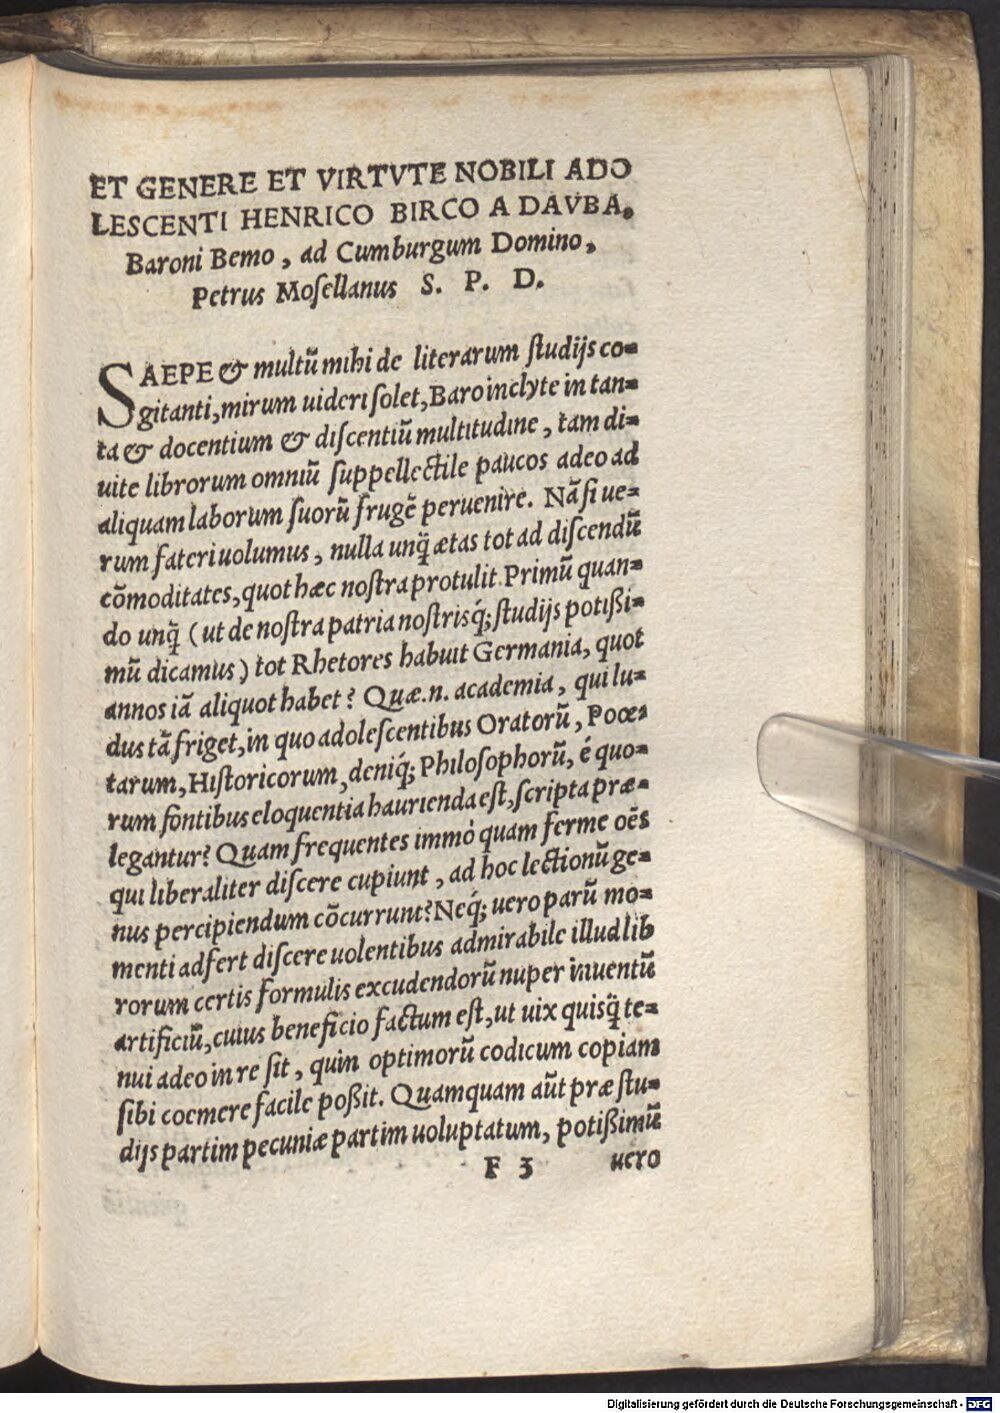 ET GENERE ET VIRTVTE NOBILI ADO
LESCENTI HENRICO BIRCO A DAVBA,
Baroni Bemo, ad Cumburgum Domino,
Petrus Moſellanus S. P. D.
SAEPE & multũ mihi de literarum ſtudijs co=
gitanti, mirum uideri ſolet, Baro inclyte in tan=
ta & docentium & diſcentiũ multitudine, tam di=
uite librorum omniũ ſuppellectile paucos adeo ad
aliquam laborum ſuorũ frugẽ peruenire. Nã ſi ue=
rum fateri uolumus, nulla unq̃ ætas tot ad diſcendũ
cõmoditates, quot hæc noſtra protulit. Primũ quan=
do unq̃ (ut de noſtra patria noſtrisq́; ſtudijs potißi=
mũ dicamus) tot Rhetores habuit Germania, quot
annos iã aliquot habet? Quæ.n. academia, qui lu=
dus tã friget, in quo adoleſcentibus Oratorũ, Poœ=
tarum, Hiſtoricorum, deniq́; Philoſophorũ, é quo=
rum fontibus eloquentia haurienda eſt, ſcripta præ=
legantur? Quam frequentes immò quam ferme oẽs
qui liberaliter diſcere cupiunt, ad hoc lectionũ ge=
nus percipiendum cõcurrunt? Neq́; uero parũ mo=
menti adfert diſcere uolentibus admirabile illud lib
rorum certis formulis excudendorũ nuper inuentũ
artificiũ, cuius beneficio factum eſt, ut uix quisq̃ te=
nui adeo in re ſit, quin optimorũ codicum copiam
ſibi coemere facile poßit. Quamquam aũt præ ſtu=
dijs partim pecuniæ partim uoluptatum, potißimũ
F 3 uero
Digitalisierung gefördert durch die Deutsche Forschungsgemeinschaft - DFG